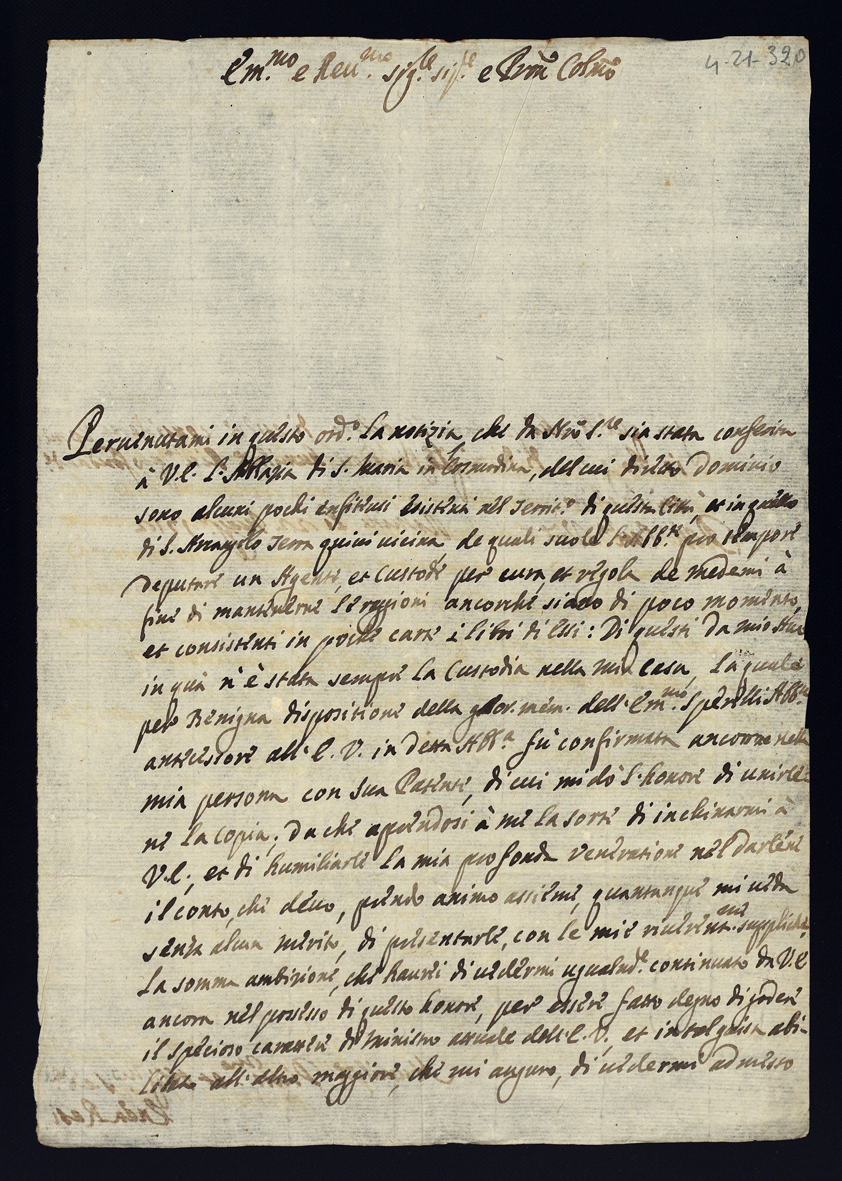 4-21-320
Em.mo e Reu.mo sig.re sig.re e Pron Colmo
Peruenutami in questo ord.o la notizia, che da Nro S.re sia stata conferita
à V.E. l'Abbazia di S. Maria in Cosmedina, del cui diretto Dominio
sono alcuni pochi enfiteusi esistenti nel Territ.o di questa Città, et in quello
di S. Arcangelo Terra quiui uicina, de quali suole l'Abb.te pro tempore
deputare un Agente, et Custode per cura, et regola de medemi à
fine di mantenerne le ragioni ancorche siano di poco momento,
et consistenti in poche carte e libri di essi: Di questi da mio
in quà n'è stata sempre la Custodia nella mia casa, la quale
per Benigna dispositione della glor. mem. dell'Em.mo Sperelli Abb.e
antecessore all'E. V. in detta Abb.a fù confirmata ancora nella
mia persona con sua Patente, di cui mi dò l'honore di unirle
ne la copia; da che aprendosi à me la sorte di inchinarmi à
V.E., et di humiliarle la mia profonda Veneratione nel darlene
il conto, che deuo, prendo animo assieme, quantunque mi ueda
senza alcun merito, di presentarle, con le mie riuerent.me suppliche,
la somma ambizione, che haurei di uedermi ugualm.te continuato da V.E.
ancora nel possesso di questo honore, per essere fatto degno di godere
il specioso carattere di Ministro attuale dell'E. V., et in tal guisa abi-
litato all'altro maggiore, che mi auguro, di uedermi admesso